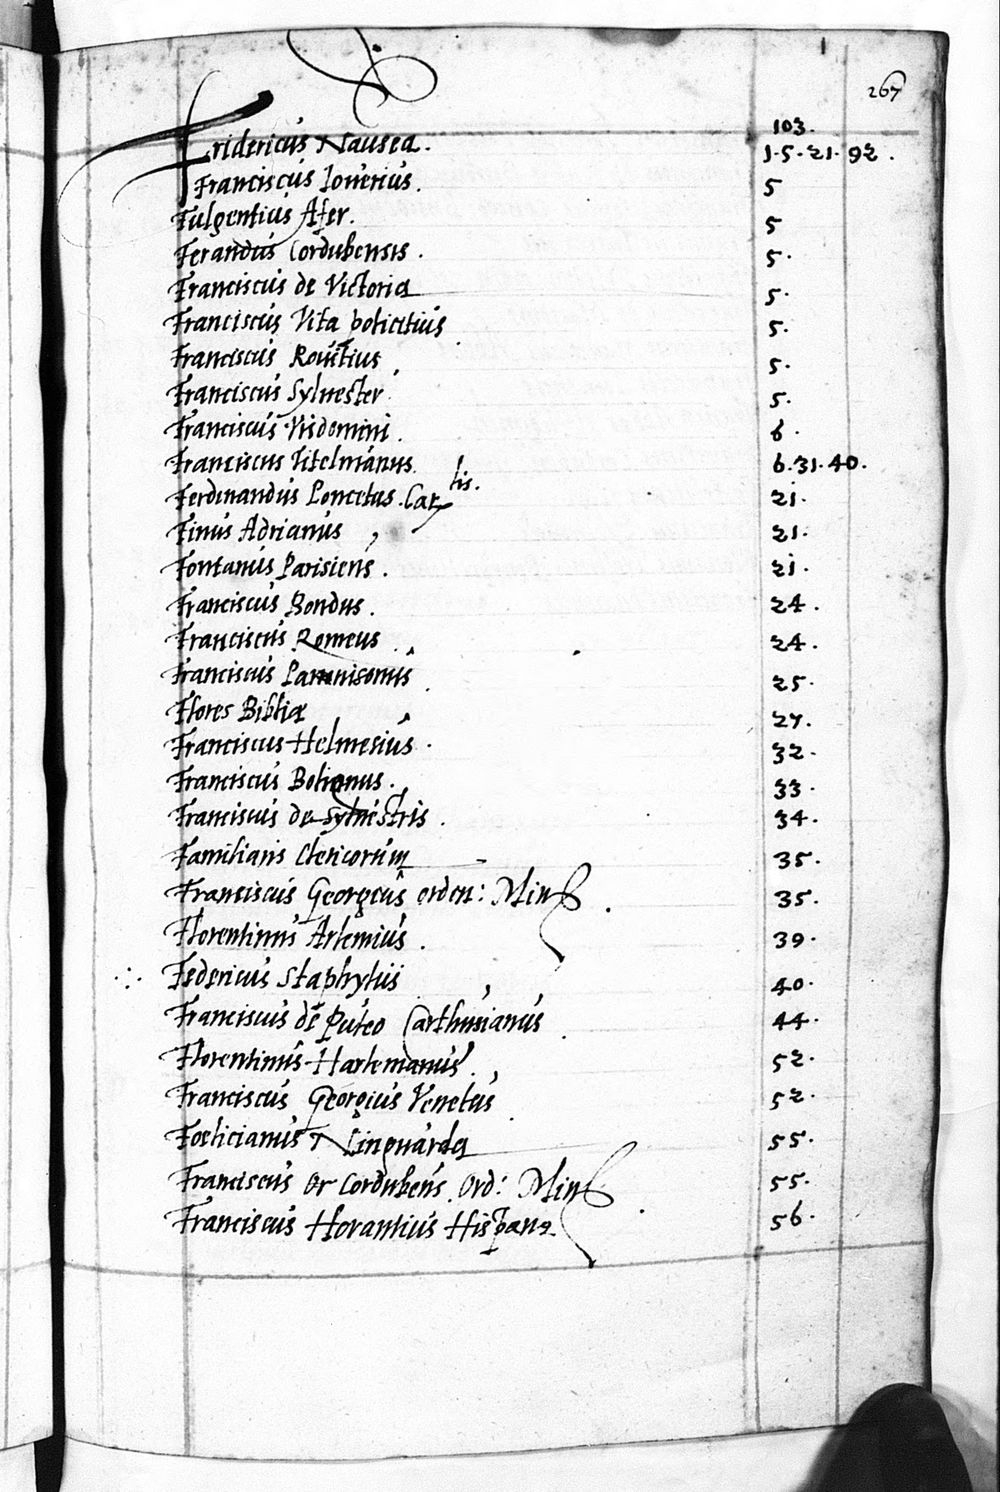 267
103.
Fridericus Nausea. 1.5.21.92.
Franciscus Iouerius. 5
Fulgentius Afer. 5
Ferandus Cordubensis. 5.
Franciscus de Victoria 5.
Franciscus Vita 5.
Franciscus 5.
Franciscus Sylvester 5.
Franciscus Vidomini. 6.
Franciscus Titelmanus. 6.31.40.
Ferdinandus Loncetus. Cartis. 21.
Finus Adrianus 21.
Fontanus Parisiens. 21.
Franciscus Bondus. 24.
Franciscus Romeus 24.
Franciscus 25.
Flores Bibliæ 27.
Franciscus Helmesius. 32.
Franciscus 33.
Franciscus de Sylvestris. 34.
Familiaris Clericorum 35.
Franciscus Georgeus orden: Min 35.
Florentinus Artemius. 39.
Federicus Staphylii 40.
Franciscus de Puteo Carthusianus 44.
Florentinus Harlemanus. 52.
Franciscus Georgius Venetus 52.
Foelicianus Ninguarda 55.
Franciscus Or Cordubens. Ord: Min 55.
Franciscus Horantius Hispanꝰ 56.